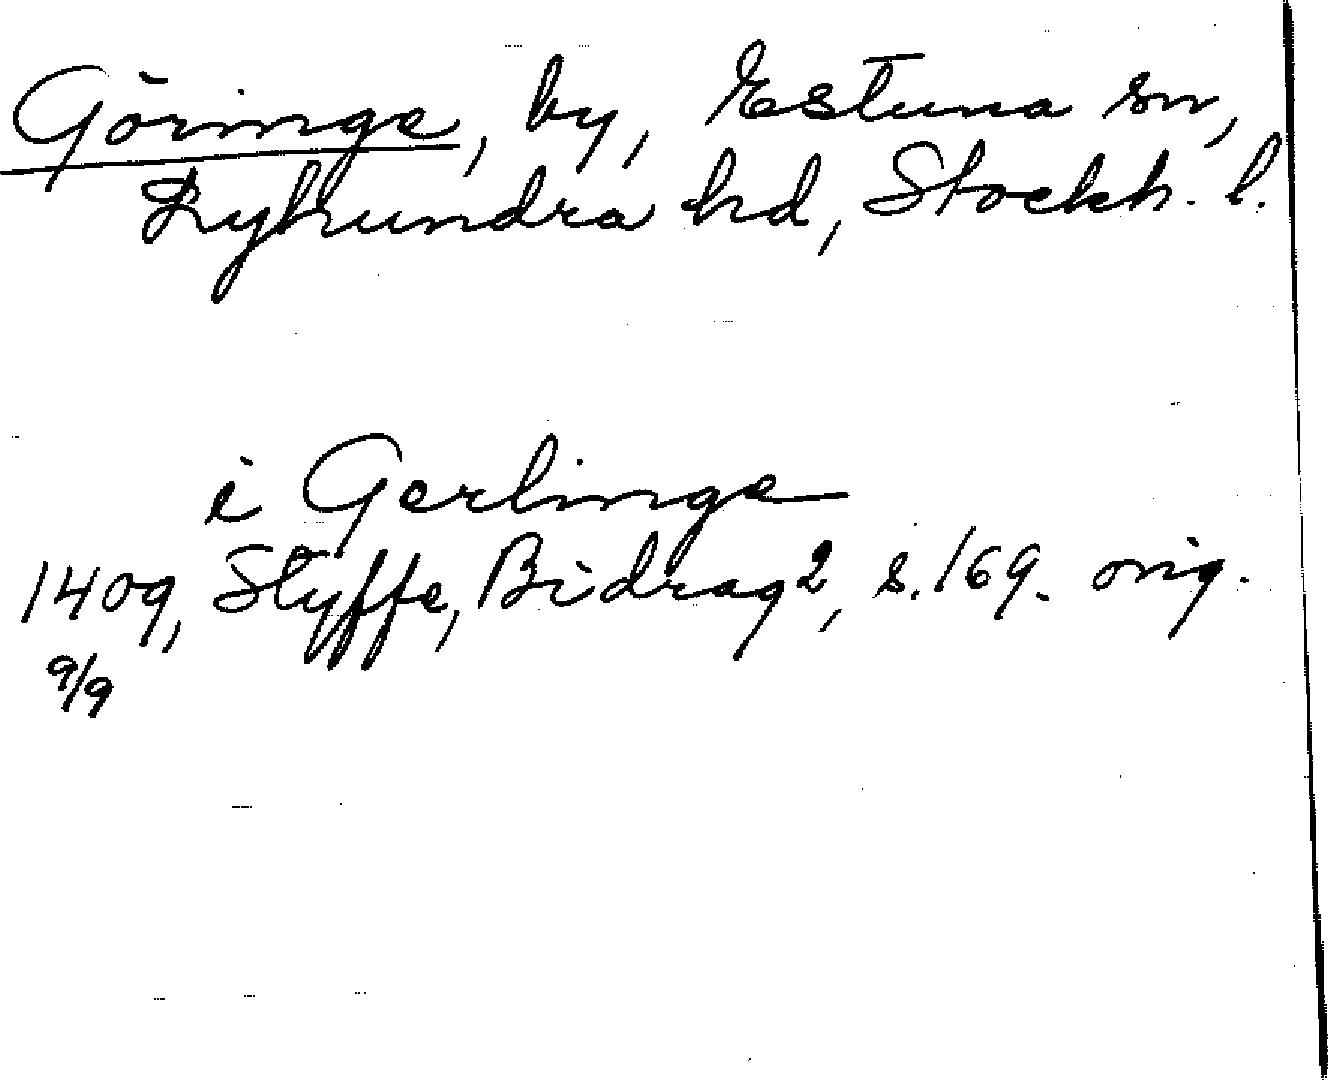 Göringe, by, Estuna sn,
Lyhundra hd, Stockh. l.
i Gerlinge
1409, Styffe, Bidrag 2, s. 169. orig.
9/9